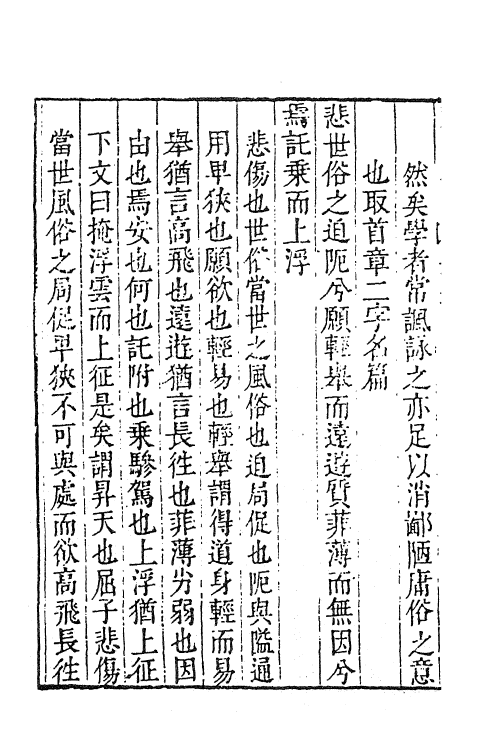 然矣學者常諷詠之亦足以消鄙陋庸俗之意
也取首章二字名篇
悲世俗之迫阨兮願輕舉而遠遊質菲薄而無因兮
焉託乗而上浮
悲傷也世俗當世之風俗也迫局促也阨與隘通
用卑狹也願欲也輕易也輕舉謂得道身輕而易
舉猶言高飛也遠遊猶言長徃也菲薄劣弱也因
由也焉安也何也託附也乗驂駕也上浮猶上征
下文曰掩浮雲而上征是矣謂昇天也屈子悲傷
當世風俗之局促卑狹不可與處而欲高飛長徃